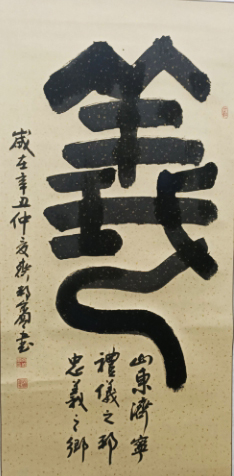 義
山東濟寧
禮儀之邦
忠義之鄉
歲在辛丑仲夏書